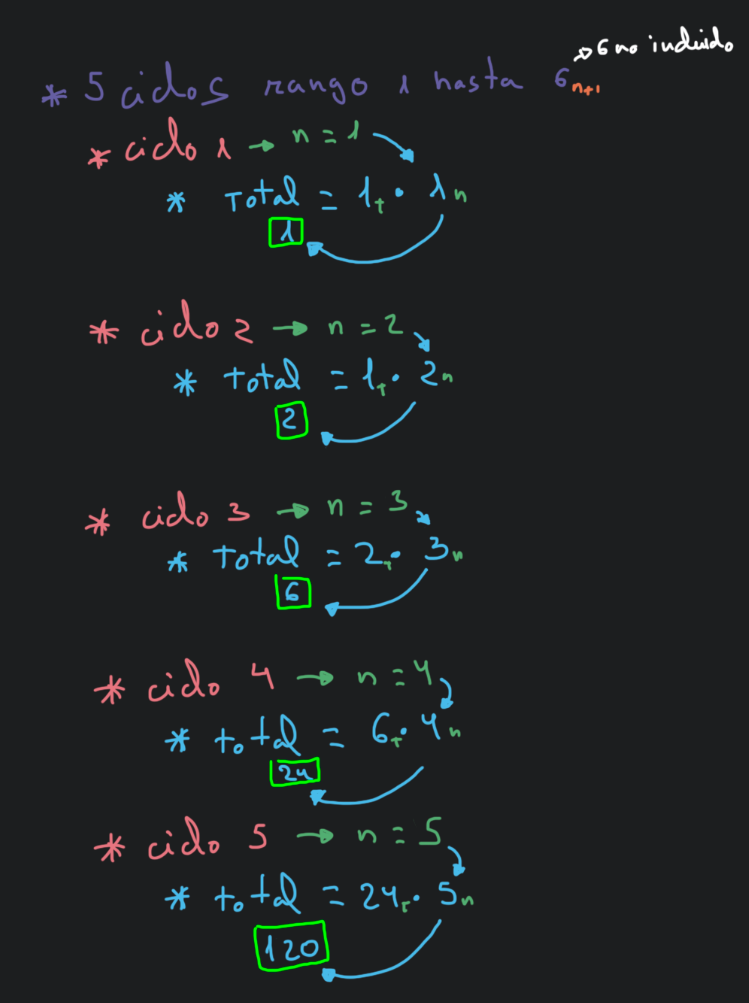 6 no incluido
* 5 ciclos rango 1 hasta 6 n+1
* ciclo 1 → n = 1
* Total = 1T · 1n
1
* ciclo 2 → n = 2
* total = 1T · 2n
2
* ciclo 3 → n = 3
* total = 2T · 3n
6
* ciclo 4 → n = 4
* total = 6T · 4n
24
* ciclo 5 → n = 5
* total = 24T · 5n
120